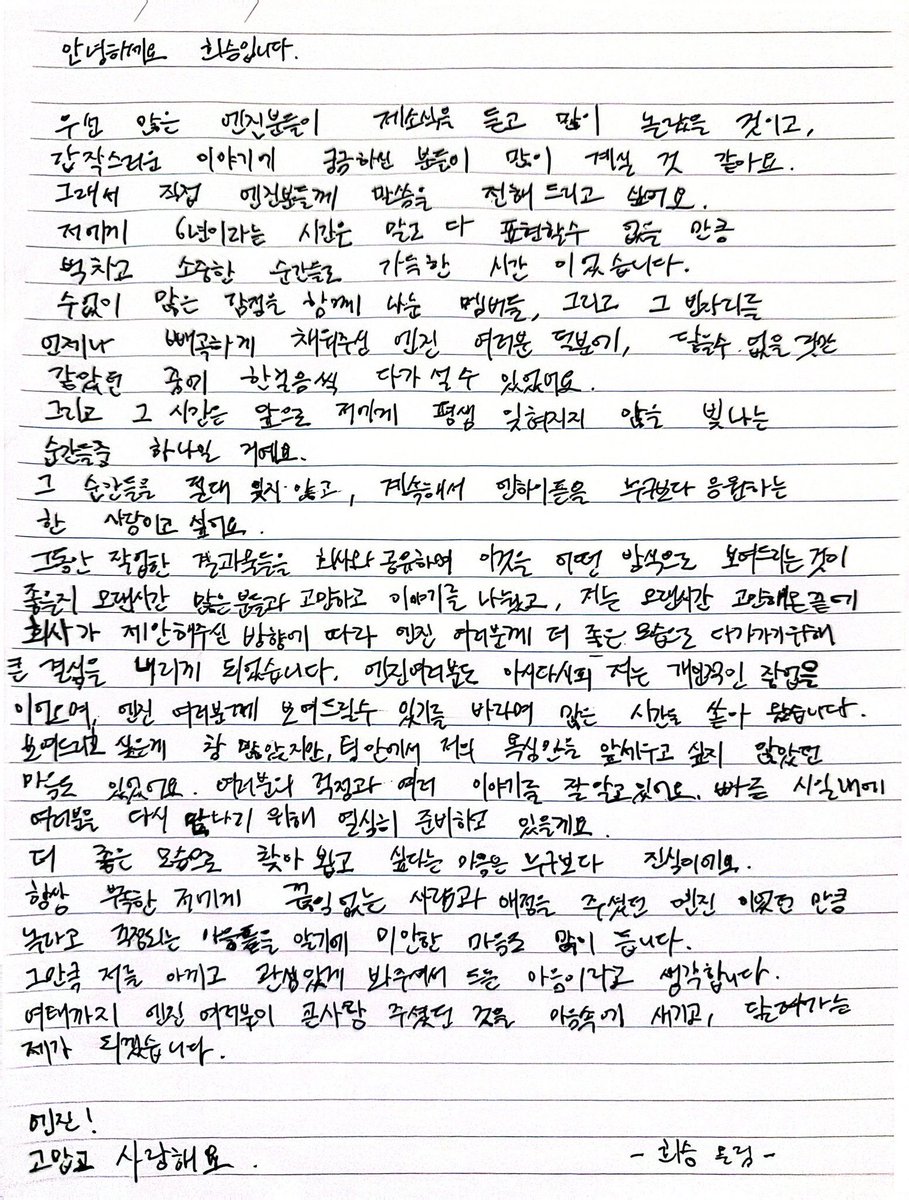 안녕하세요 희승입니다.
우선 많은 엔진분들이 제소식을 듣고 많이 놀랐을 것이고,
갑작스러운 이야기에 궁금하신 분들이 많이 계실 것 같아요.
그래서 직접 엔진분들께 말씀을 전해 드리고 싶어요.
저에게 6년이라는 시간은 말로 다 표현할수 없을 만큼
벅차고 소중한 순간들로 가득한 시간 이었습니다.
수없이 많은 감정을 함께 나눈 멤버들, 그리고 그 빈자리를
언제나 빼곡하게 채워주신 엔진 여러분 덕분에, 닿을수 없을 것만
같았던 꿈에 한걸음씩 다가 설 수 있었어요.
그리고 그 시간은 앞으로 저에게 평생 잊혀지지 않을 빛나는
순간들중 하나일 거예요.
그 순간들을 절대 잊지 않고, 계속해서 엔하이픈을 누구보다 응원하는
한 사람이고 싶어요.
그동안 작업한 결과물들을 회사와 공유하며 이것을 어떤 방식으로 보여드리는것이
좋을지 오랜시간 많은분들과 고민하고 이야기를 나눴고, 저는 오랜시간 고민해온끝에
회사가 제안해주신 방향에 따라 엔진 여러분께 더 좋은 모습으로 다가가기위해
큰 결심을 내리게 되었습니다. 엔진여러분도 아시다시피 저는 개인적인 작업을
이어오며, 엔진 여러분께 보여드릴수 있기를 바라며 많은 시간을 쏟아 왔습니다.
보여드리고 싶은게 참 많았지만, 팀 안에서 저의 욕심만을 앞세우고 싶지 않았던
마음도 있었어요. 여러분의 걱정과 여러 이야기를 잘 알고있어요. 빠른 시일내에
여러분을 다시 만나기 위해 열심히 준비하고 있을게요.
더 좋은 모습으로 찾아 뵙고 싶다는 마음은 누구보다 진심이에요.
항상 부족한 저에게 끊임 없는 사랑과 애정을 주셨던 엔진 이었던 만큼
놀라고 걱정되는 마음들을 알기에 미안한 마음도 많이 듭니다.
그만큼 저를 아끼고 관심있게 봐주셔서 드는 마음이라고 생각합니다.
여태까지 엔진 여러분이 큰사랑 주셨던 것을 마음속에 새기고, 달려가는
제가 되겠습니다.
엔진!
고맙고 사랑해요.
- 희승 올림 -